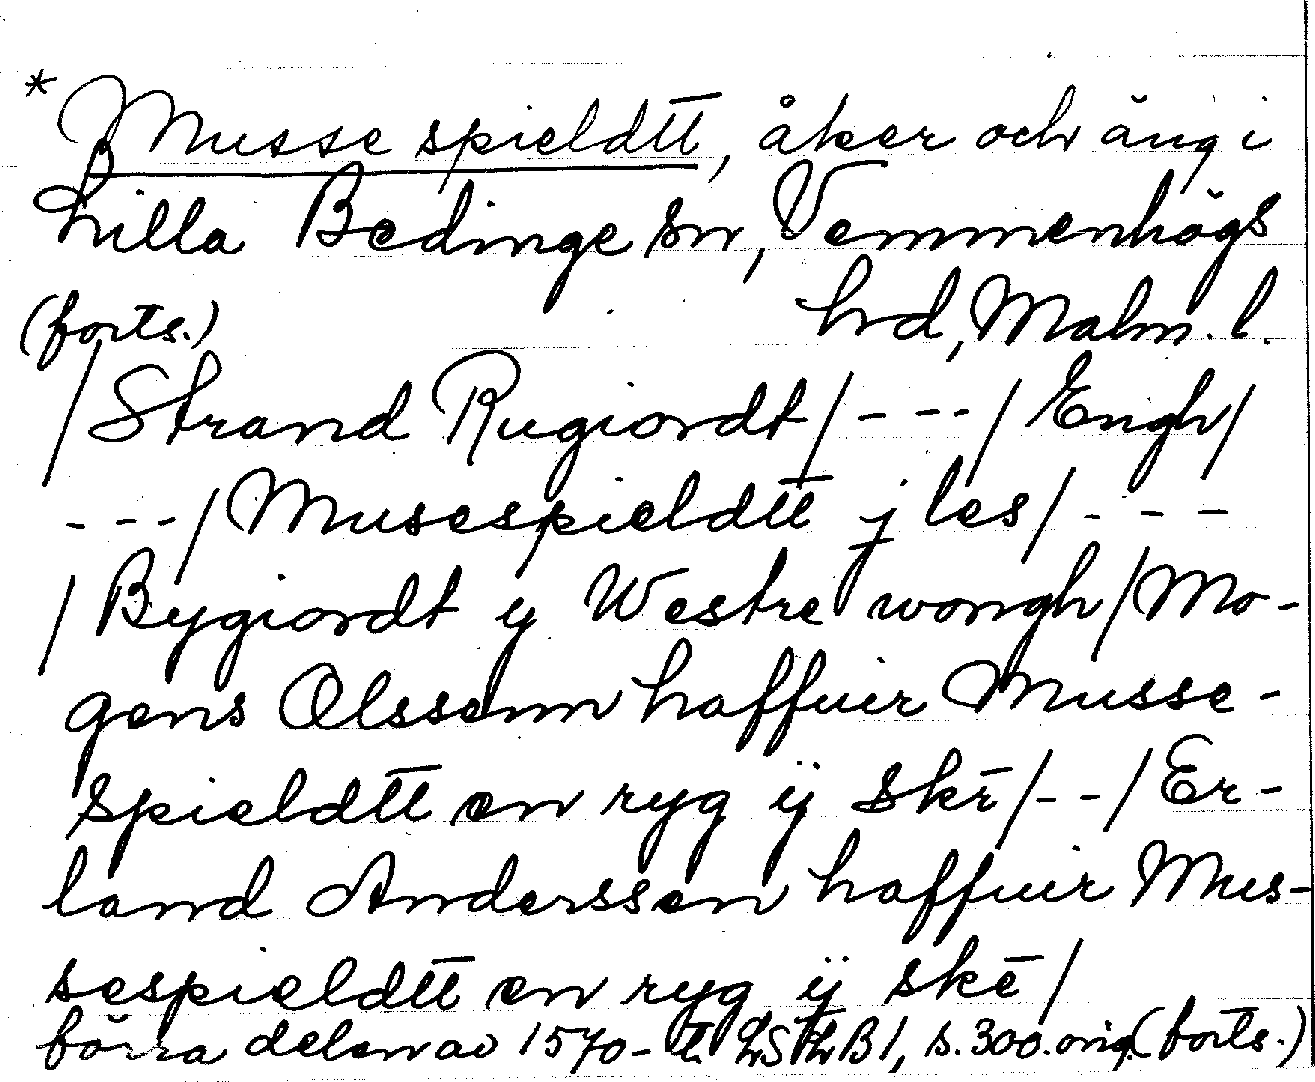 * Musse spieldtt, åker och äng i
Lilla Bedinge sn, Vemmenhögs
(forts.) hd, Malm. l.
/ Strand Rugiordt / - - - / Engh /
- - - / Musespieldtt j les / - - -
/ Bygiordt y Westre wongh / Mo-
gens Olssenn haffuer Musse-
spieldtt en ryg ÿ skē / - - / Er-
land Anderssen haffuer Mus-
sespieldtt en ryg ÿ skē /
förra delen av 1570-t. LSth B1, s. 300. orig. (forts.)